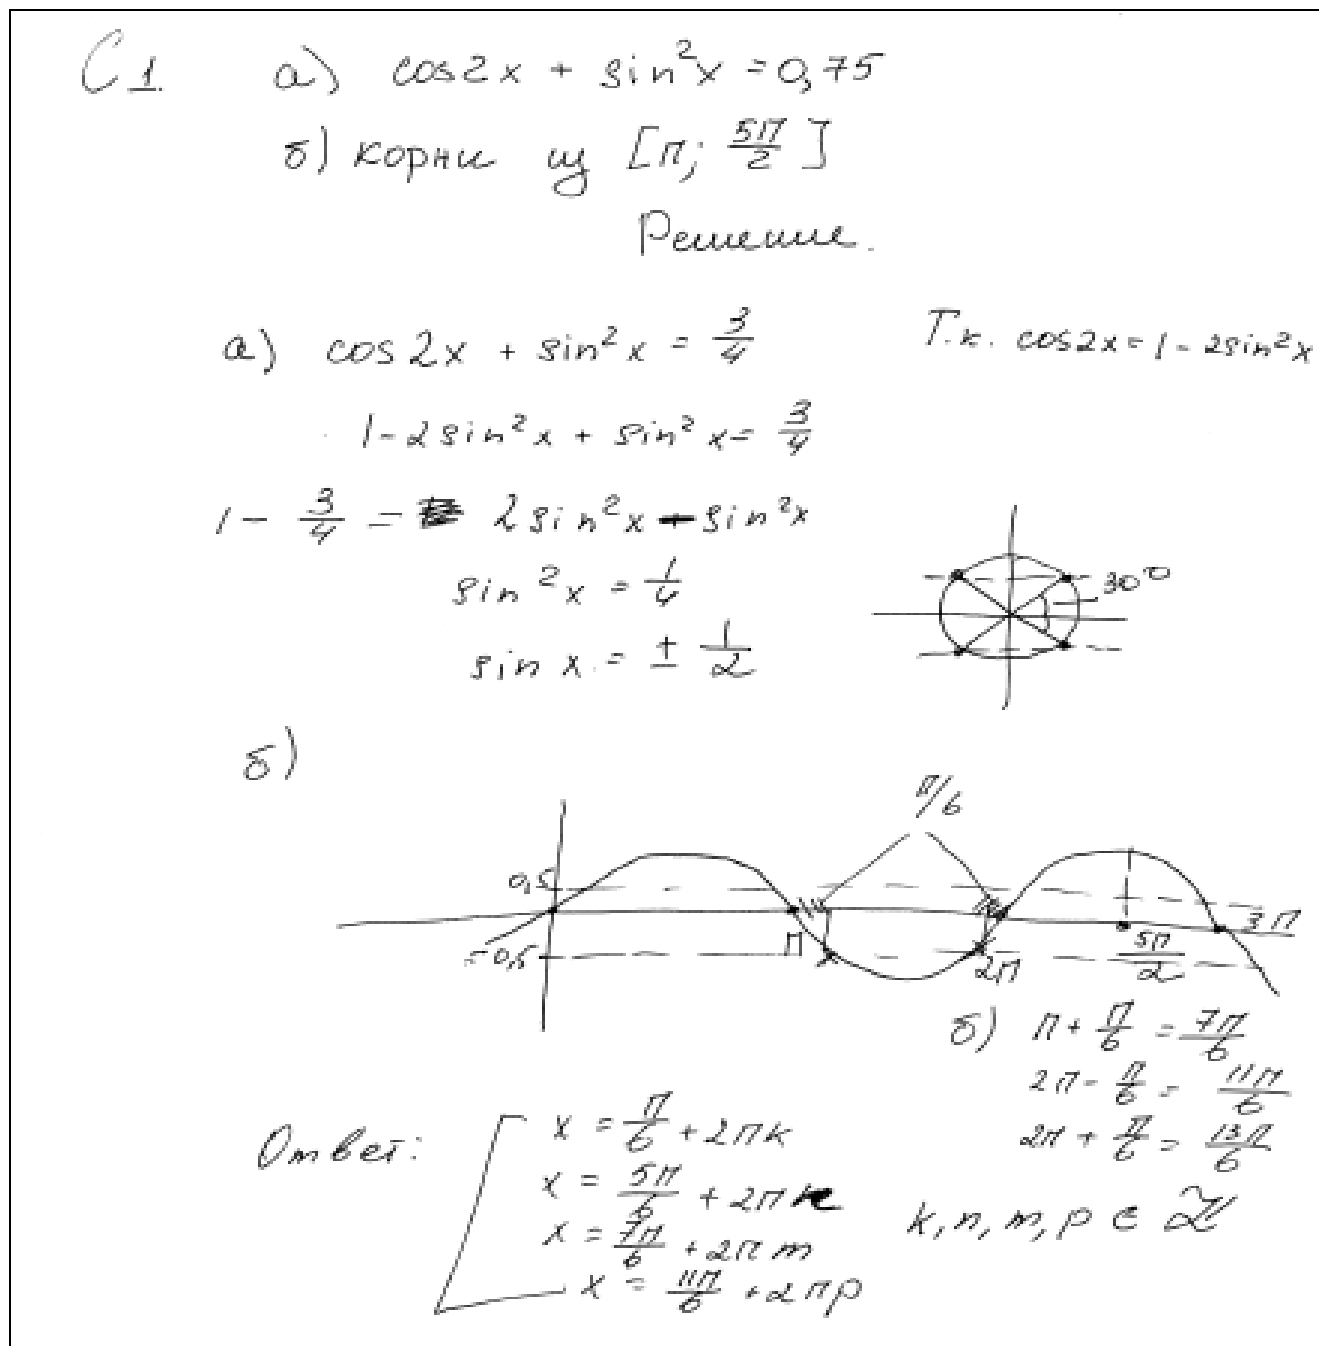 C1. а) cos2x + sin²x = 0,75
б) корни из [π; 5π/2]
Решение.
а) cos2x + sin²x = 3/4
Т.к. cos2x = 1 - 2sin²x
1 - 2sin²x + sin²x = 3/4
1 - 3/4 = 2sin²x - sin²x
sin²x = 1/4
30°
sin x = ± 1/2
б)
π/6
0,5
-0,5
π
2π
5π/2
3π
б) π + π/6 = 7π/6
2π - π/6 = 11π/6
2π + π/6 = 13π/6
Ответ:
x = π/6 + 2πk
x = 5π/6 + 2πn
x = 7π/6 + 2πm
x = 11π/6 + 2πp
k, n, m, p ∈ Z